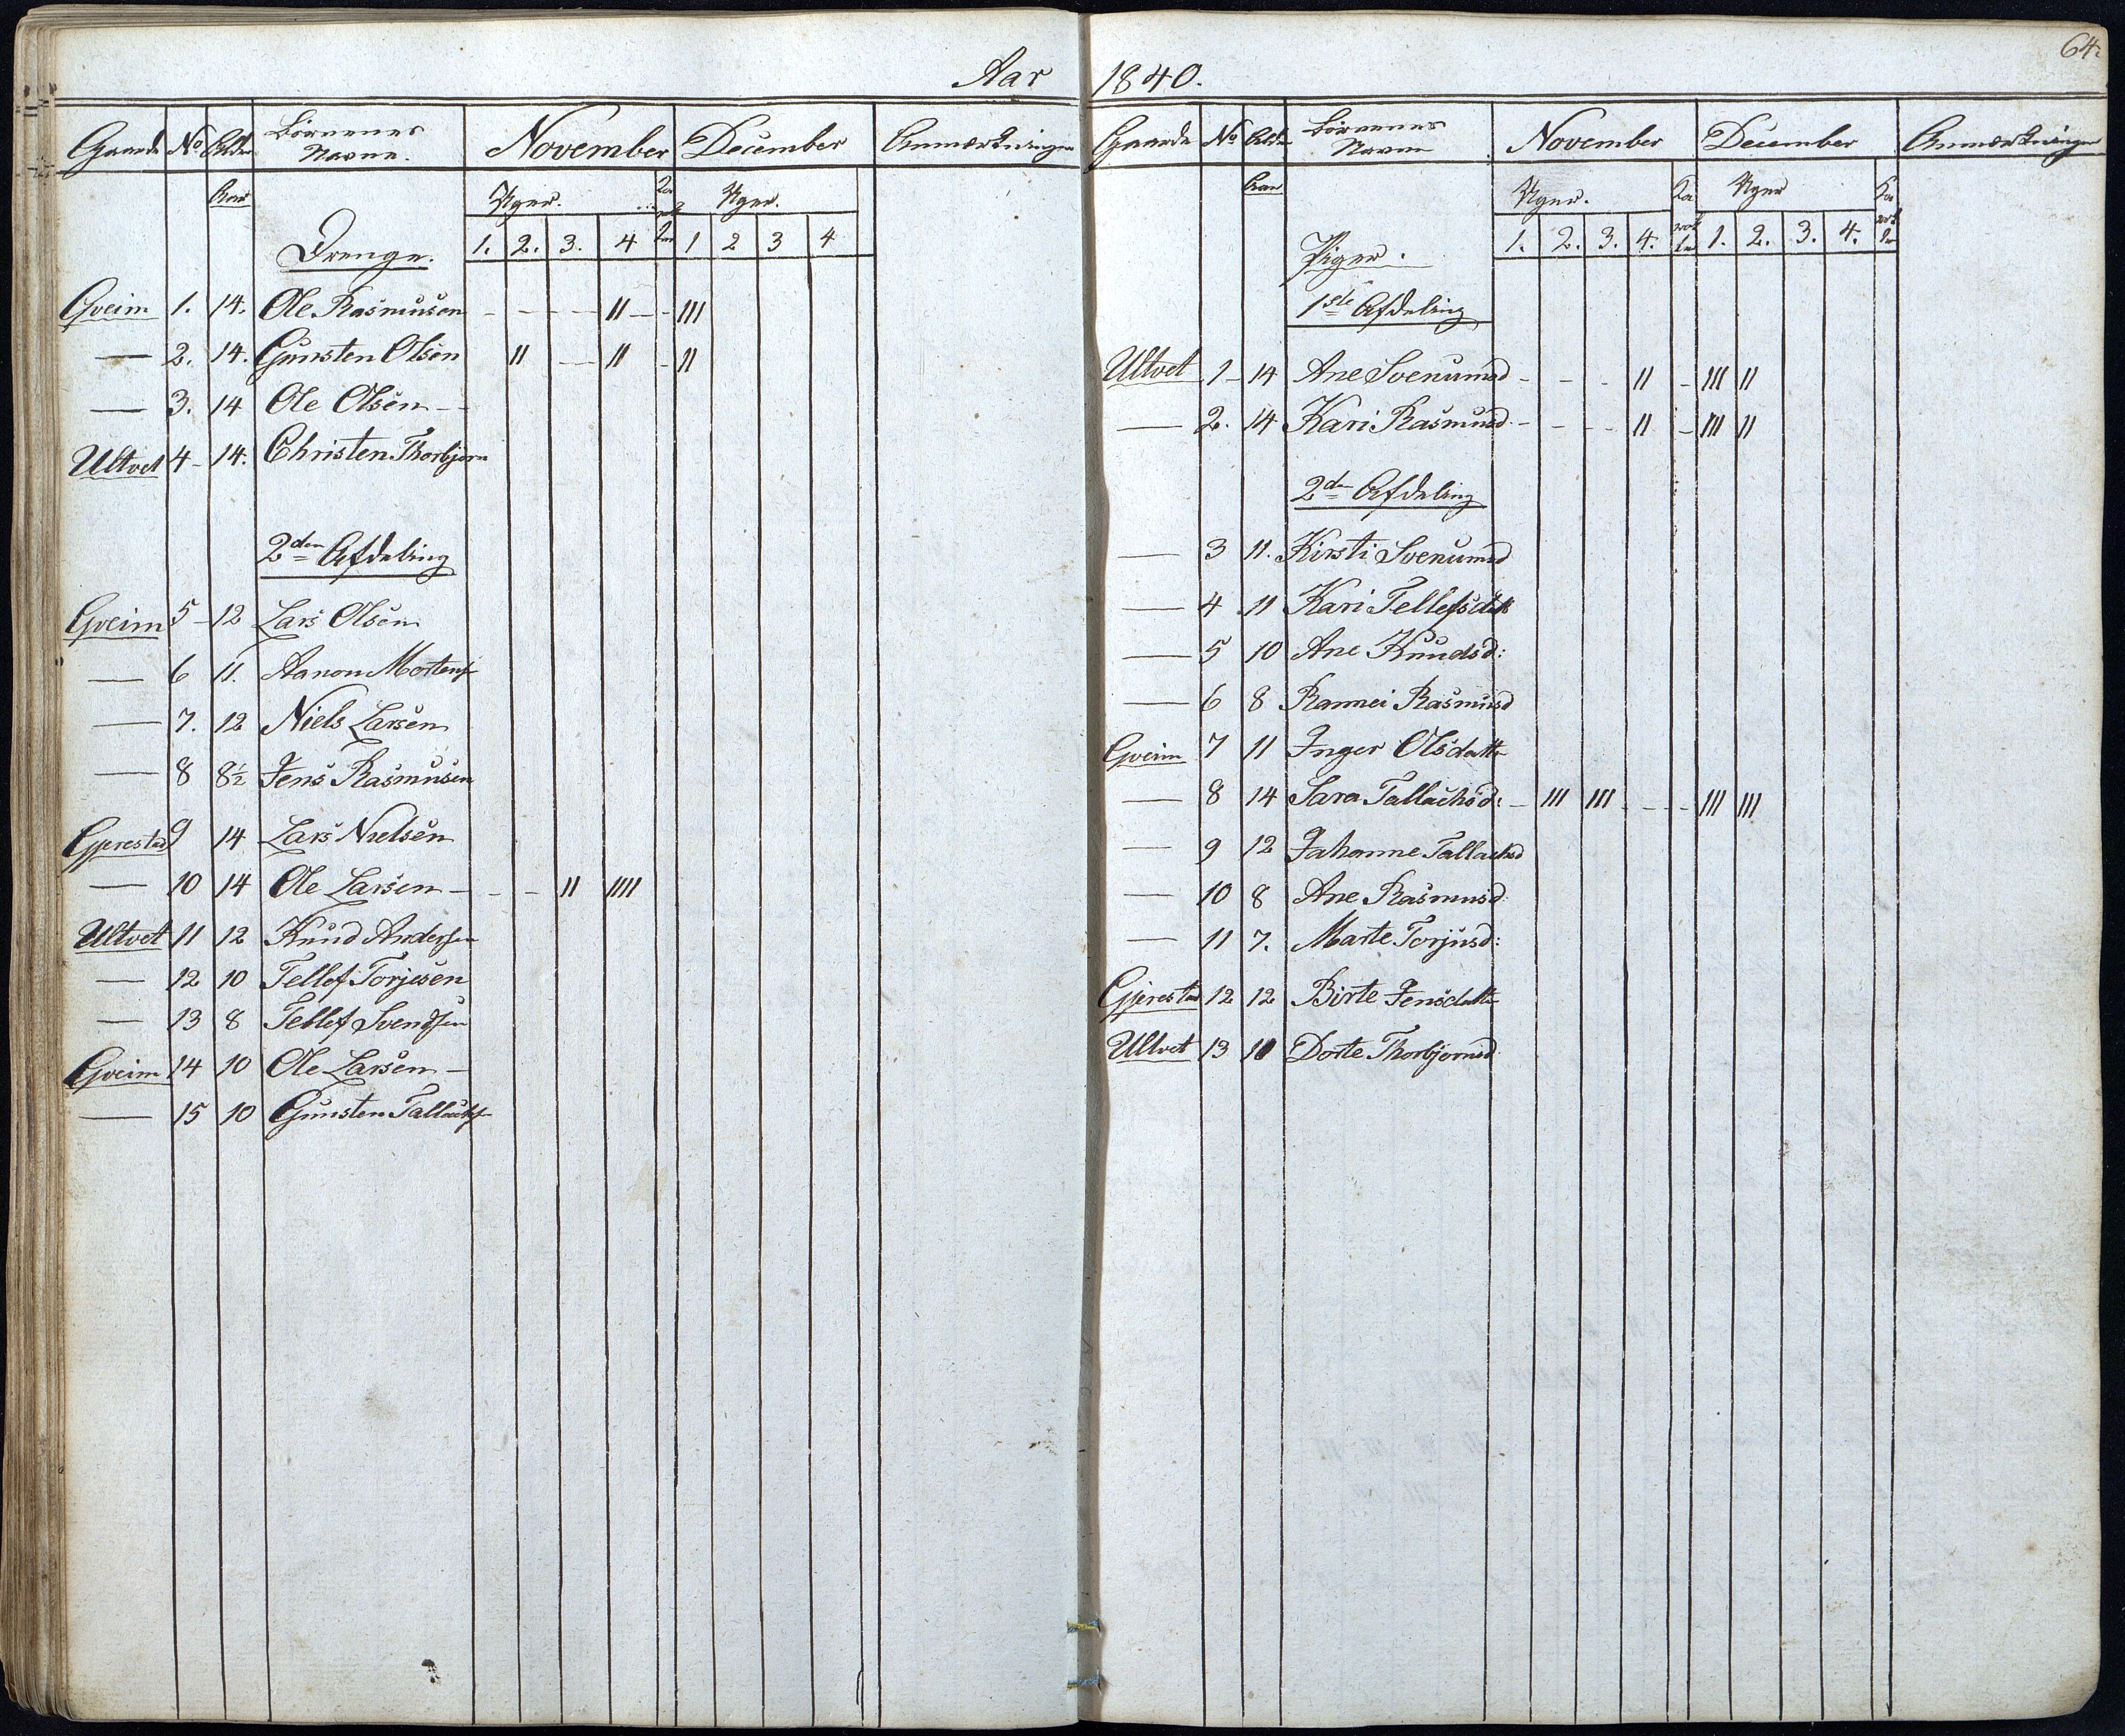 Aar 1840.
64.
Gaarde No Alder Börnenes Navne. November December Anmærkninger
Aar Uger. Uger.
Drenge. 1. 2. 3. 4 1 2 3 4
Gveim 1. 14. Ole Rasmusen - - - - II - - III
— 2. 14. Gunsten Olsen II — II - II
— 3. 14 Ole Olsen - -
Ultvet 4 - 14. Christen Thorbjørn
2den Afdeling
Gveim 5 - 12 Lars Olsen
— 6 11. Aanon Mortens
— 7. 12 Niels Larsen
— 8 8½ Jens Rasmusen
Gjerestad 9 14 Lars Nielsen
— 10 14 Ole Larsen - - - II IIII
Ultvet 11 12 Knud Andersen
— 12 10 Tellef Torjesen
— 13 8 Tellef Svendsen
Gveim 14 10 Ole Larsen -
— 15 10 Gunsten Tallachs
Gaarde No Alder Börnenes Navne November December Anmærkninger
Aar Uger. Uger
Piger. 1. 2. 3. 4. 1. 2. 3. 4.
1ste Afdeling
Ultvet 1 - 14 Ane Svenumsd - - - II - III II
— 2. 14 Kari Rasmusd. - - - II - III II
2den Afdeling
— 3 11. Kirsti Svenumsd
— 4 11 Kari Tellefsdatt
— 5 10 Ane Knudsd:
— 6 8 Rannei Rasmusd
Gveim 7 11 Inger Olsdatte
— 8 14 Sara Tallachsd: - III III - - - III III
— 9 12 Johanne Tallachsd
— 10 8 Ane Rasmusd
— 11 7. Marte Torjusd:
Gjerestad 12 12 Birte Jensdatte
Ultvet 13 10 Dorte Thorbjørnsd